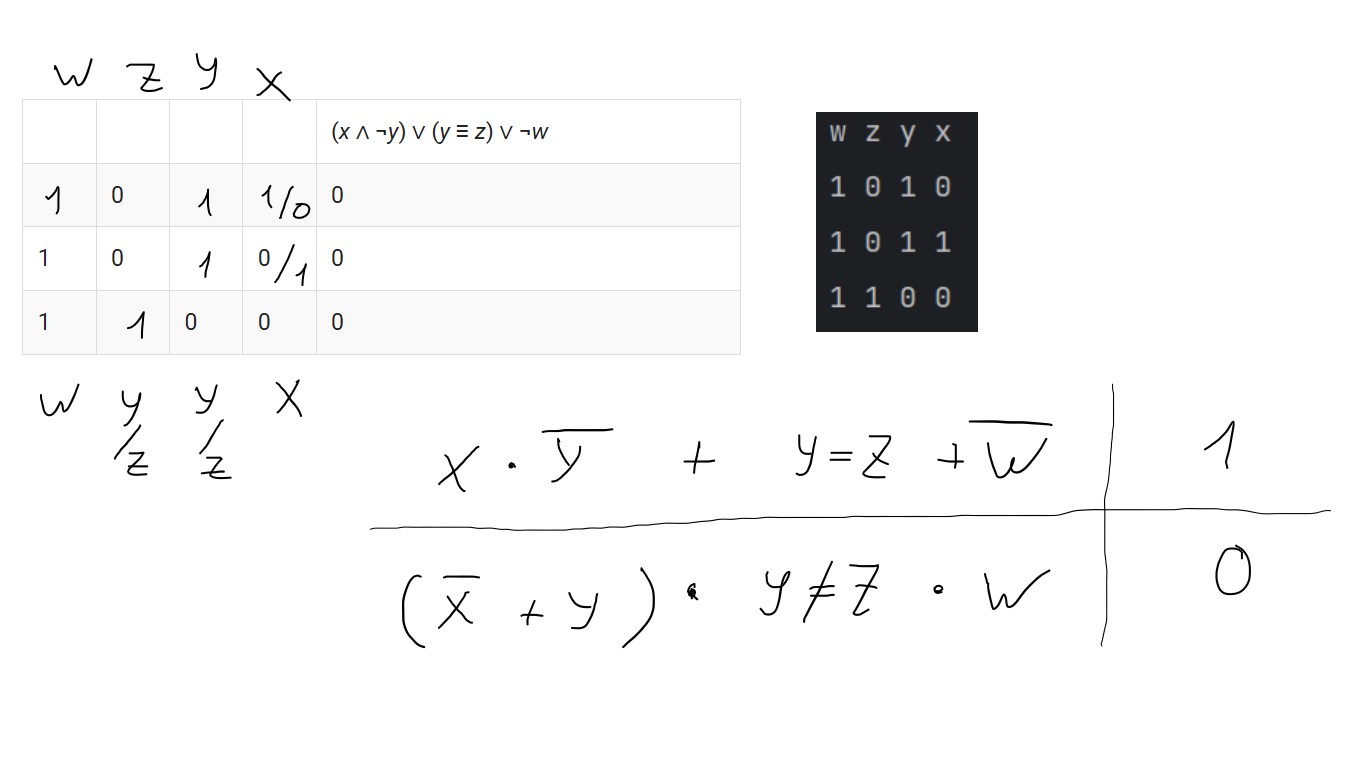 w z y x
(x ∧ ¬y) ∨ (y ≡ z) ∨ ¬w
1 0 1 1/0 0
1 0 1 0/1 0
1 1 0 0 0
w y/z y/z x
w z y x
1 0 1 0
1 0 1 1
1 1 0 0
x · y̅ + y = z + w̅ 1
(x̅ + y) · y ≠ z · w 0